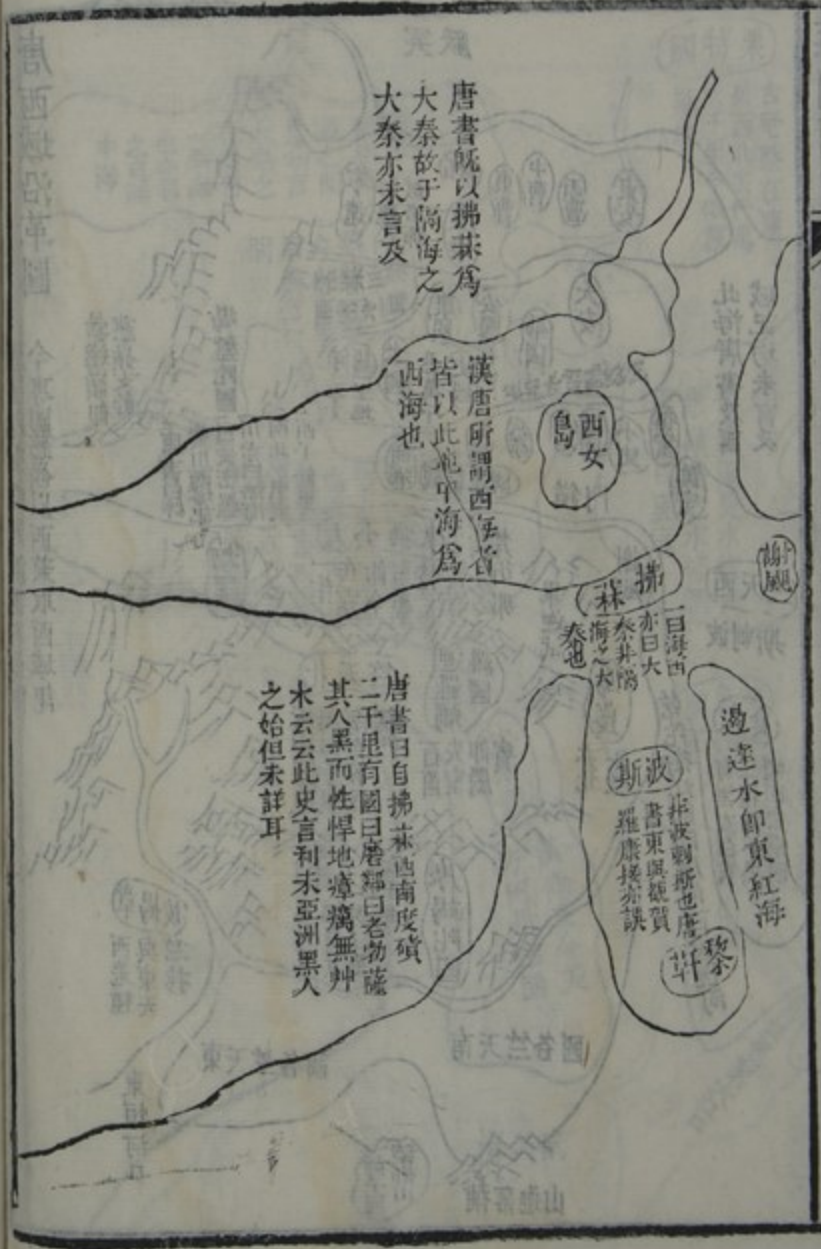 唐書既以拂菻爲
大秦故于隔海之
大秦亦未言及
漢唐所謂西海者
皆以此地中海爲
西海也
西女
島
拂
菻
一曰海西
亦曰大
秦非隔
海之大
秦也
過達水即東紅海
波斯
非波剌斯也唐
書東與
羅康接亦誤
黎
軒
唐書曰自拂菻西南度磧
二千里有國曰磨鄰曰老勃薩
其人黑而性悍地瘴癘無艸
木云云此史言利未亞洲黑人
之始但未詳耳